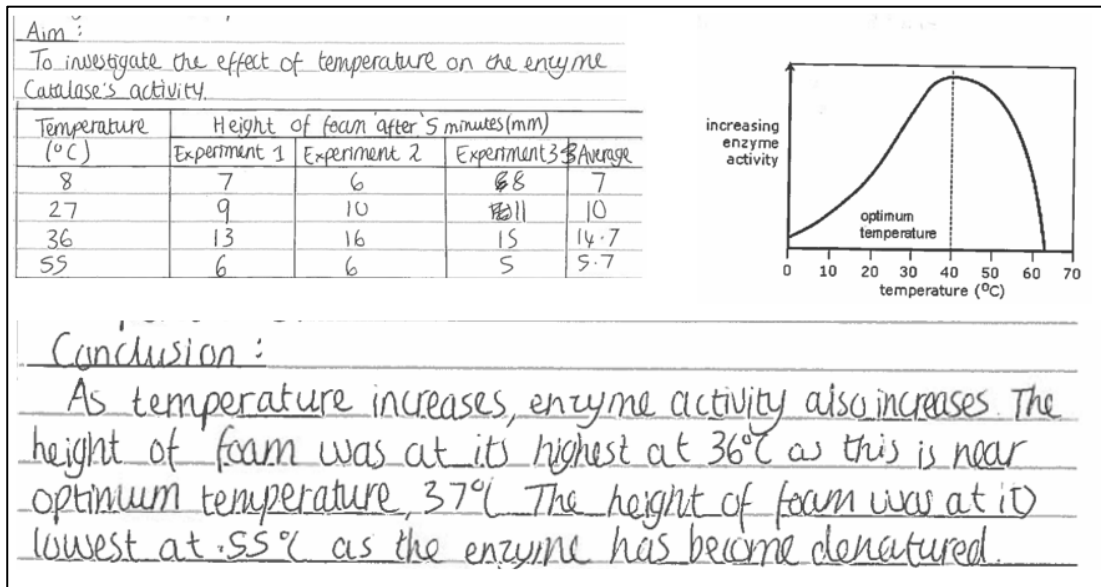 Aim :
To investigate the effect of temperature on the enzyme
Catalase's activity.
Temperature (°C) Height of foam after 5 minutes (mm)
Experiment 1 Experiment 2 Experiment 3 Average
8 7 6 8 7
27 9 10 11 10
36 13 16 15 14.7
55 6 6 5 5.7
increasing
enzyme
activity
optimum
temperature
0 10 20 30 40 50 60 70
temperature (°C)
Conclusion :
As temperature increases, enzyme activity also increases. The
height of foam was at its highest at 36°C as this is near
optimum temperature, 37°C The height of foam was at it
lowest at 55°C as the enzyme has become denatured.